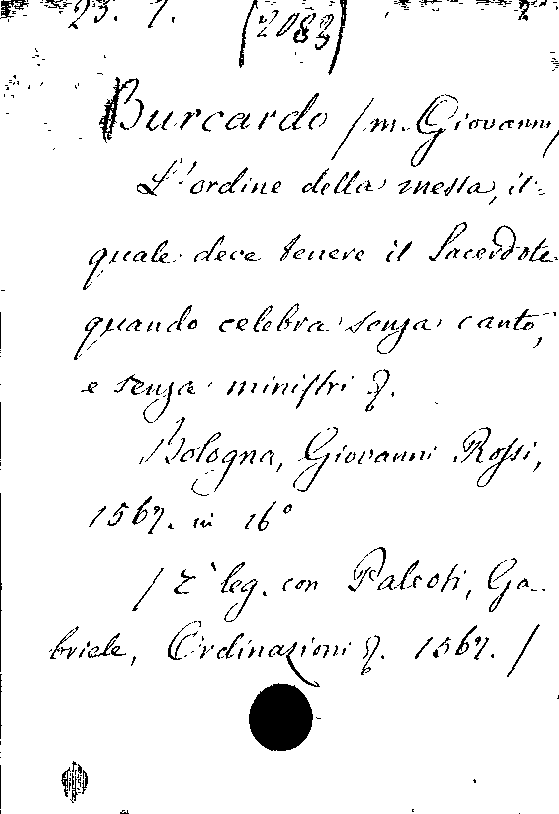 23. 7. (2083)
Burcardo /m. Giovanni/
L'ordine della messa, il
quale deve tenere il Sacerdote
quando celebra senza canto,
e senza ministri &.
Bologna, Giovanni Rossi,
1567. in 16°
/E' leg. con Paleoti, Ga-
briele, Ordinazioni &. 1567./